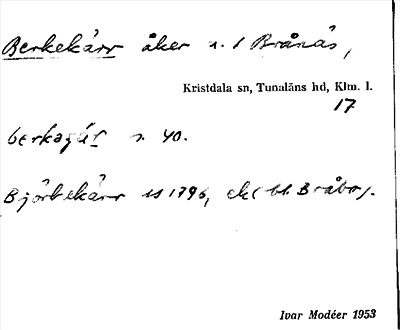 Berkekärr åker n. 1 Brånäs,
Kristdala sn, Tunaläns hd, Klm. l.
17
n. 40.
Björkekärr 1796, ek( bl. Bråbo).
Ivar Modéer 1953